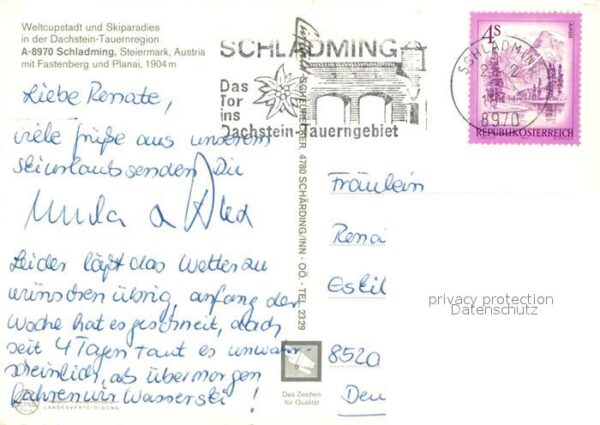 Weltcupstadt und Skiparadies
in der Dachstein-Tauernregion
A-8970 Schladming, Steiermark, Austria
mit Fastenberg und Planai, 1904 m
SCHLADMING
Das
Tor
ins
Dachstein-Tauerngebiet
SCHLADMING
8970
4S
ALMSEE
REPUBLIK ÖSTERREICH
Liebe Renate,
viele Grüße aus unserem
Skiurlaub senden Dir
Leider läßt das Wetter zu
wünschen übrig, anfang der
Woche hat es geschneit, doch
seit 4 Tagen taut es unwahr-
scheinlich, ab übermorgen
fahren wir Wasserski!
LANDESVERTEIDIGUNG
4780 SCHÄRDING/INN - OÖ. - TEL. 2329
Das Zeichen
für Qualität
Fräulein
Rena
Eskil
8520
Deu
privacy protection
Datenschutz